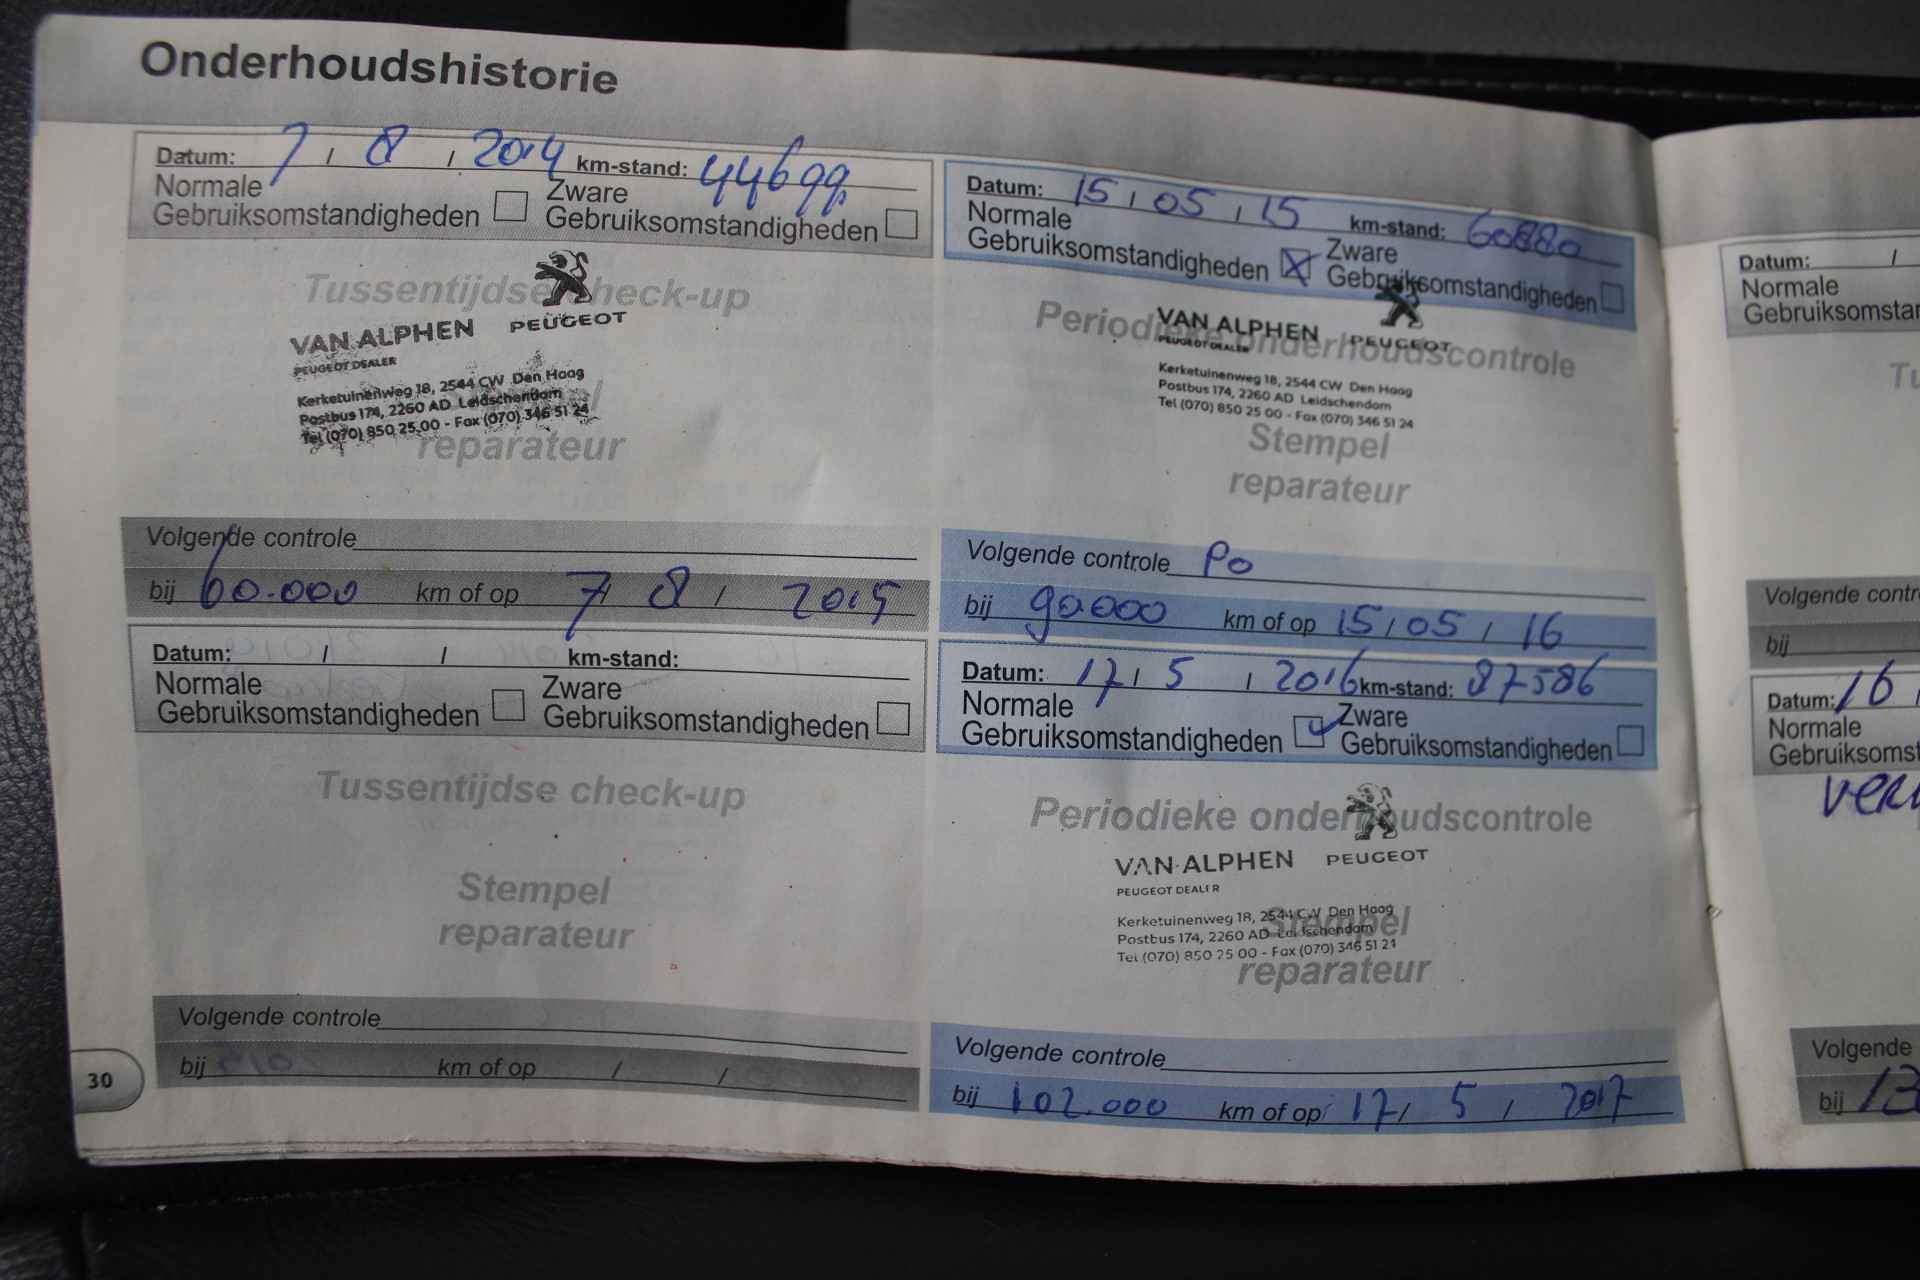 Onderhoudshistorie
Datum: 7 / 8 / 2014 km-stand: 44699
Normale Gebruiksomstandigheden Zware Gebruiksomstandigheden
Tussentijdse check-up
VAN ALPHEN PEUGEOT
PEUGEOT DEALER
Kerketuinenweg 18, 2544 CW Den Haag
Postbus 174, 2260 AD Leidschendam
Tel (070) 850 25 00 - Fax (070) 346 51 24
reparateur
Volgende controle
bij 60.000 km of op 7 / 8 / 2015
Datum: / / km-stand:
Normale Gebruiksomstandigheden Zware Gebruiksomstandigheden
Tussentijdse check-up
Stempel
reparateur
Volgende controle
bij km of op / /
30
Datum: 15 / 05 / 15 km-stand: 60880
Normale Gebruiksomstandigheden Zware Gebruiksomstandigheden
Periodieke onderhoudscontrole
VAN ALPHEN PEUGEOT
PEUGEOT DEALER
Kerketuinenweg 18, 2544 CW Den Haag
Postbus 174, 2260 AD Leidschendam
Tel (070) 850 25 00 - Fax (070) 346 51 24
Stempel
reparateur
Volgende controle Po
bij 90000 km of op 15 / 05 / 16
Datum: 17 / 5 / 2016 km-stand: 87586
Normale Gebruiksomstandigheden Zware Gebruiksomstandigheden
Periodieke onderhoudscontrole
VAN ALPHEN PEUGEOT
PEUGEOT DEALER
Kerketuinenweg 18, 2544 CW Den Haag
Postbus 174, 2260 AD Leidschendam
Tel (070) 850 25 00 - Fax (070) 346 51 24
Stempel
reparateur
Volgende controle
bij 102.000 km of op 17 / 5 / 2017
Datum: /
Normale
Volgende
bij
Datum: 16
Normale
Volgende
bij